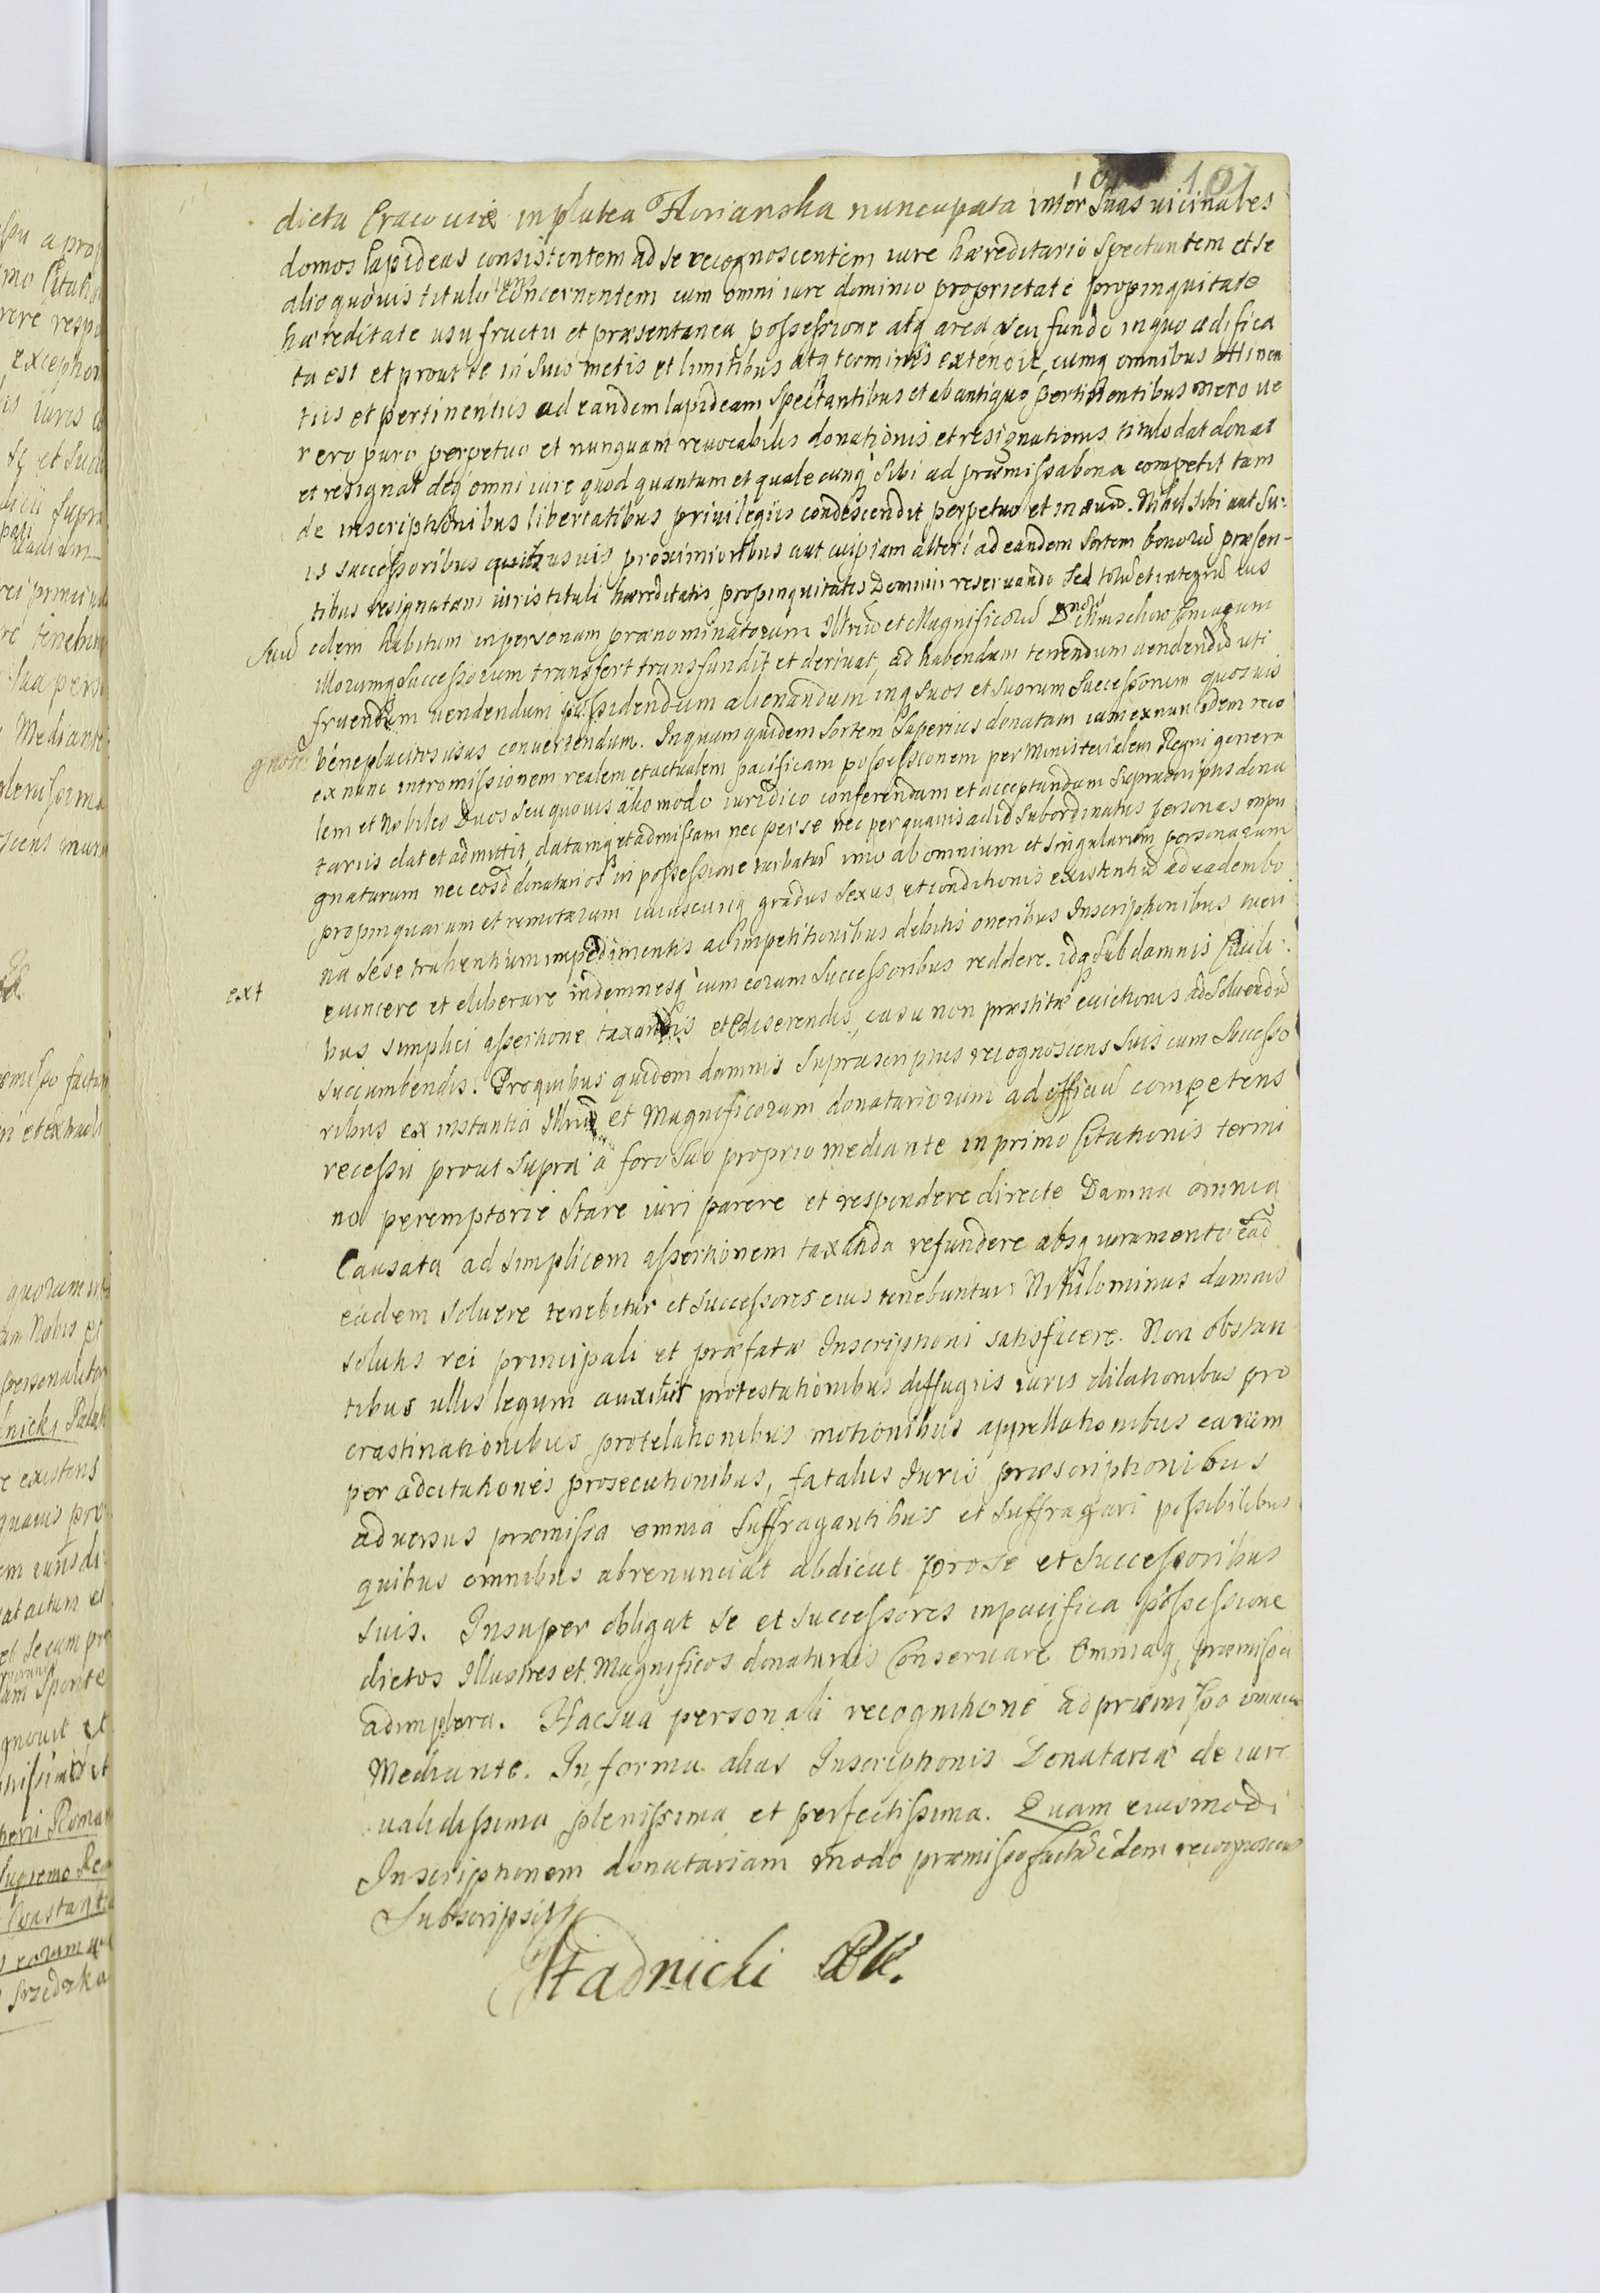 101
dicta Cracoviæ in platea Florianska nuncupata inter Suas vicinales
domos lapideas consistentem ad se recognoscentem iure hæreditario spectantem et se
alio quovis titulo concernentem cum omni iure dominio proprietate propinquitate
hæreditate usufructu et præsentanea possessione atq area seu fundo in quo ædifica
ta est et prout se in suis metis et limitibus atq terminis extendit, cumq omnibus attinen
tiis et pertinentiis ad eandem lapideam spectantibus et ab antiquo pertinentibus mero ve
rero puro perpetuo et nunquam revocabilis donationis et resignationis titulo dat donat
et resignat deq omni iure quod quantum et qualecunq sibi ad præmissa bona competit tam
de inscriptionibus libertatibus privilegiis condescendit perpetuo et in ævu. Nihil sibi aut su:
is successoribus quibusvis proximioribus aut cuipiam alteri ad eandem sortem bonoru præsen-
tibus resignatam iuris tituli hæreditatis propinquitatis Dominii reservando sed totu et integru ius
Suu
edem habitum in personam prænominatorum Illriu et Magnificoru Dnor Coniugum
illorumq successorum transfert transfundit et derivat, ad habendum tenendum utendendu uti
fruendum vendendum possidendum alienandum inq suos et suorum successorum quosvis
beneplacitos usus convertendum. In quam quidem sortem superius donatam iam ex nunc idem reco
gnos:
ex nunc intromissionem realem et actualem pacificam possessionem per Ministerialem Regni genera
lem et Nobiles Duos seu quovis alio modo iuridico conferendam et acceptandam suprascriptis dona
tariis dat et admittit, datamq et admissam nec per se nec per quavis ad id subordinatas personas impu
gnaturum nec eosd donatarios in possessione turbatur imo ab omnium et singularum personarum
propinquarum et remotarum cuiuscunq gradus sexus et conditionis existentiu ad eadem bo
na sese trahentium impedimentis ac impetitionibus debitis oneribus Inscriptionibus tueri
ext
evincere et eliberare indemnesq cum eorum successoribus reddere. idq sub damnis Civili:
bus simplici assertione taxandis et ediserendis, casu non præstitæ evictionis ad solvendu
succumbendis. Pro quibus quidem damnis suprascriptus recognoscens suis cum successo
ribus ex instantia Illriu et Magnificorum donatariorum ad officiu competens
recessu prout supra a foro suo proprio mediante in primo Citationis termi
no peremptorie stare iuri parere et respondere directe Damna omnia
Causata ad simplicem assertionem taxanda refundere absq iuramento ead
eadem solvere tenebitur et successores eius tenebuntur Nihilominus damnis
solutis rei principali et præfatæ Inscriptioni satisfacere. Non obstan
tibus ullis legum auxiliis protestationibus diffugiis iuris dilationibus pro
crastinationibus protelationibus motionibus appellationibus earum
per adcitationes prosecutionibus, fatalus Juris præscriptionibus
adversus præmissa omnia suffragantibus et suffragari possibilibus
quibus omnibus abrenunciat abdicat pro se et successoribus
suis. Insuper obligat se et successores in pacifica possessione
dictos Illustres et Magnificos donatarios Conservare Omniaq præmissa
adimplere. Hac sua personali recognitione ad præmissa omnia
Mediante. In forma alias Inscriptionis Donatariæ de iure
validissima plenissima et perfectissima. Quam eiusmodi
Inscriptionem donatariam modo præmisso facta idem recognoscens
Subscripsit
Stadnicki